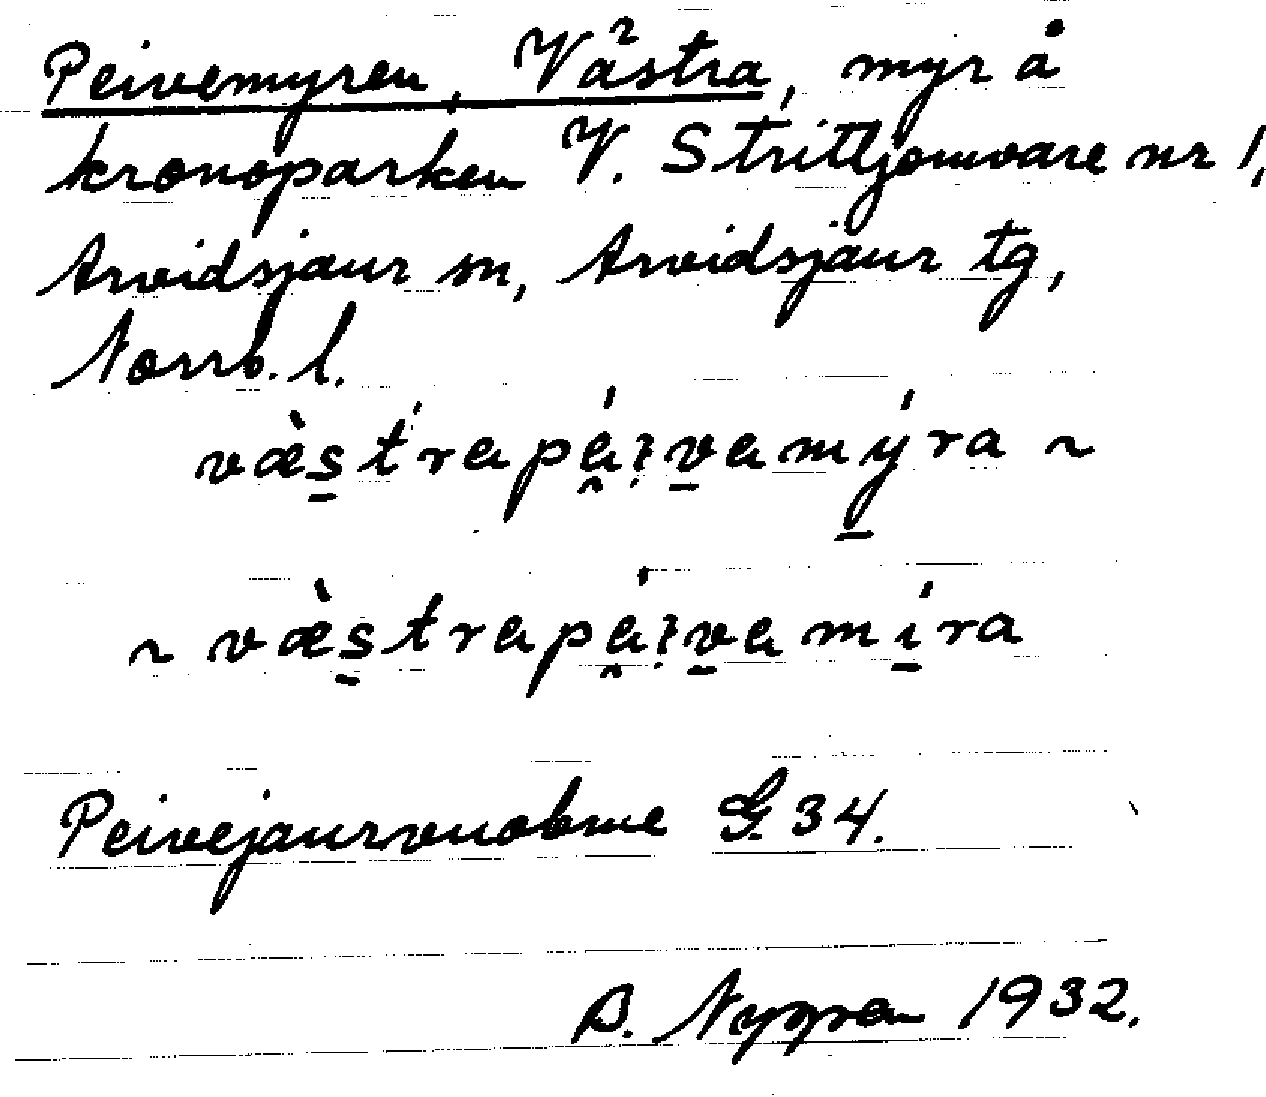 Peivemyren, Västra, myr å
kronoparken V. Strittjomvare nr 1,
Arvidsjaur sn, Arvidsjaur tg,
Norrb. l.
væ̀s̲trapáıvamýra ~
~ væ̀s̲trapáıvamíra
Peivejaurvuobme G 34.
B. Nygren 1932.